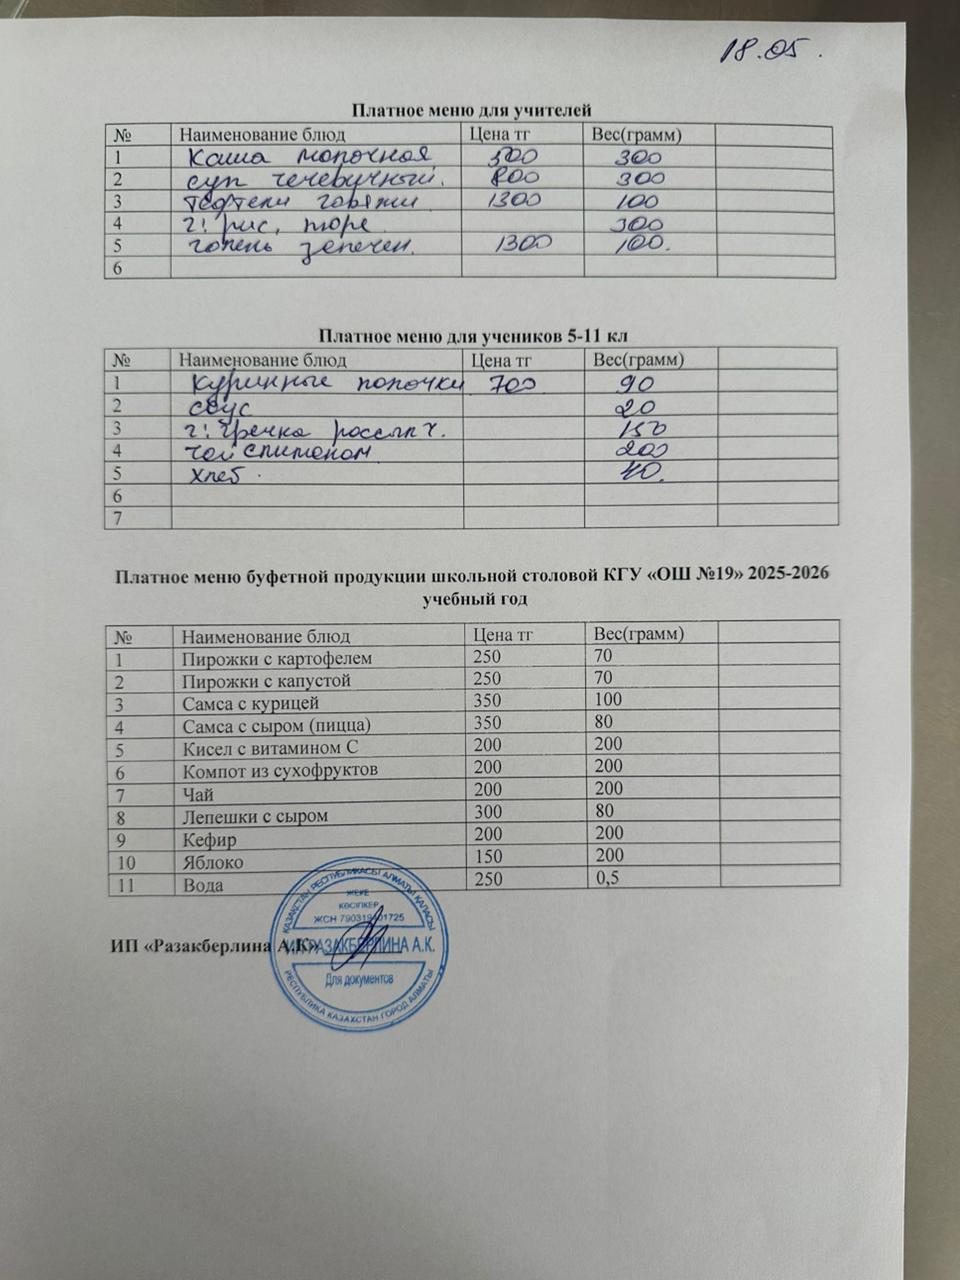 18.05.
Платное меню для учителей
№ Наименование блюд Цена тг Вес(грамм)
1 Каша молочная 500 300
2 суп чечевичный. 800 300
3 тефтели говяжи 1300 100
4 г! рис, пюре 300
5 голень запечен. 1300 100.
6
Платное меню для учеников 5-11 кл
№ Наименование блюд Цена тг Вес(грамм)
1 Куринные палочки 700 90
2 соус 20
3 г! Гречка рассып ч. 150
4 чай слимоном 200
5 хлеб. 40.
6
7
Платное меню буфетной продукции школьной столовой КГУ «ОШ №19» 2025-2026
учебный год
№ Наименование блюд Цена тг Вес(грамм)
1 Пирожки с картофелем 250 70
2 Пирожки с капустой 250 70
3 Самса с курицей 350 100
4 Самса с сыром (пицца) 350 80
5 Кисел с витамином С 200 200
6 Компот из сухофруктов 200 200
7 Чай 200 200
8 Лепешки с сыром 300 80
9 Кефир 200 200
10 Яблоко 150 200
11 Вода 250 0,5
ҚАЗАҚСТАН РЕСПУБЛИКАСЫ АЛМАТЫ ҚАЛАСЫ
ЖЕКЕ
КӘСІПКЕР
ЖСН 790319401725
ИП «Разакберлина А.К»
ИП РАЗАКБЕРЛИНА А.К.
Для документов
РЕСПУБЛИКА КАЗАХСТАН ГОРОД АЛМАТЫ